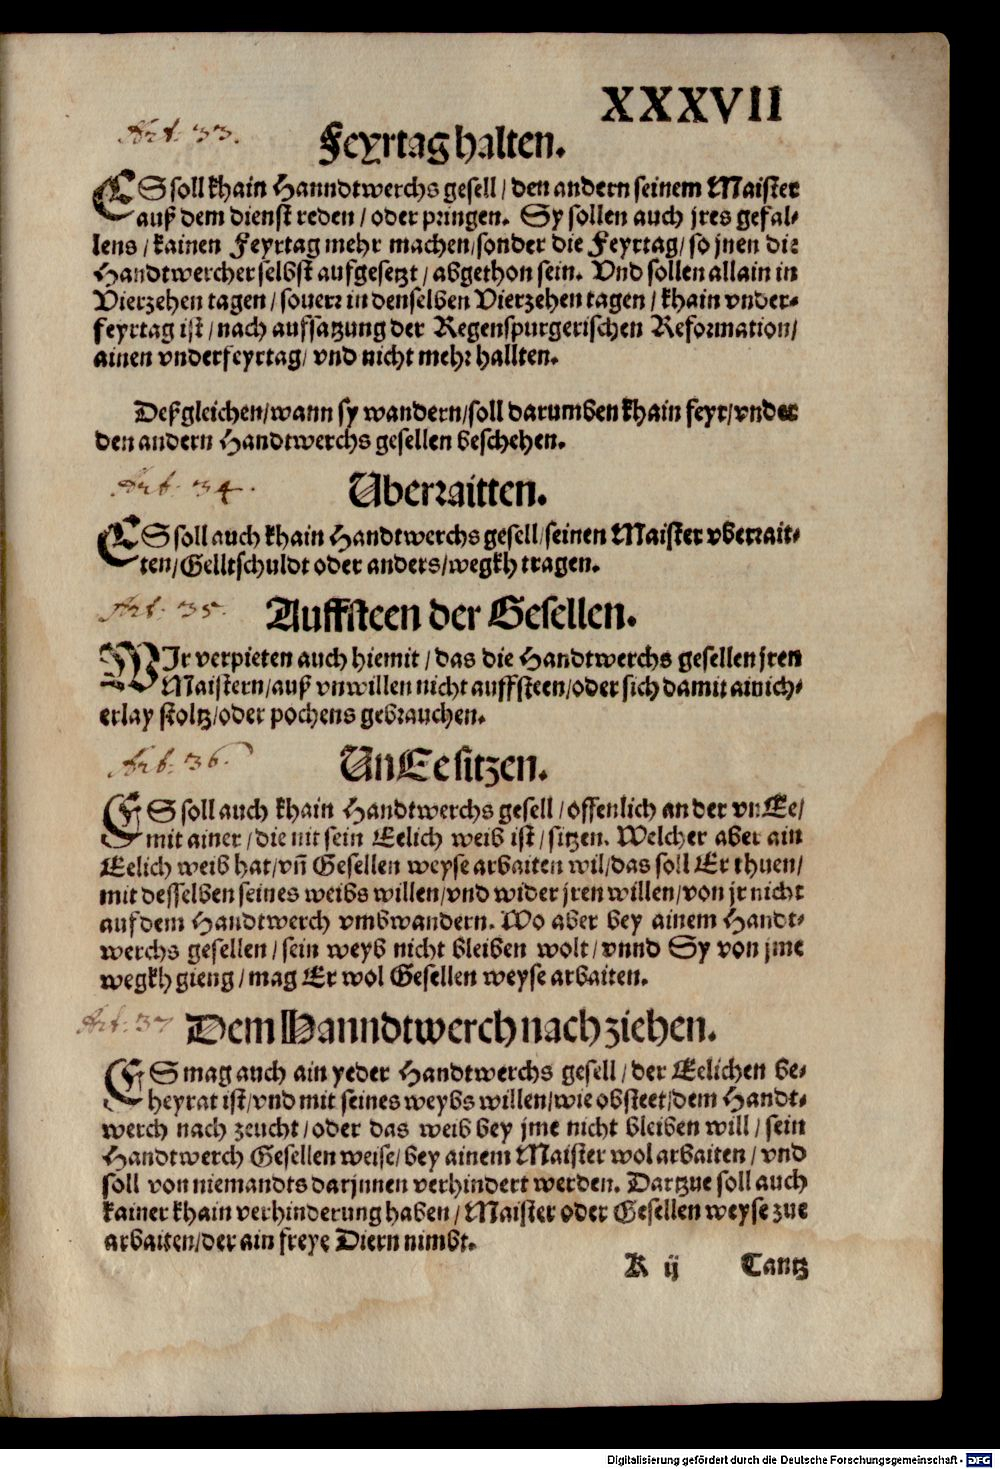 XXXVII
Art. 33.
Feyrtag halten.
ES soll khain Hanndtwerchs gesell / den andern seinem Maister
auß dem dienst reden / oder pringen. Sy sollen auch jres gefal-
lens / kainen Feyrtag mehr machen / sonder die Feyrtag / so jnen die
Handtwercher selbst aufgesetzt / abgethon sein. Vnd sollen allain in
Vierzehen tagen / souerr in denselben Vierzehen tagen / khain vnder-
feyrtag ist / nach auffsatzung der Regenspurgerischen Reformation /
ainen vnderfeyrtag / vnd nicht mehr hallten.
Deßgleichen / wann sy wandern / soll darumben khain feyr / vnder
den andern Handtwerchs gesellen beschehen.
Art. 34.
Uberraitten.
ES soll auch khain Handtwerchs gesell / seinen Maister vberrait-
ten / Gelltschuldt oder anders / wegkh tragen.
Art. 35.
Auffsteen der Gesellen.
WIr verpieten auch hiemit / das die Handtwerchs gesellen jren
Maistern / auß vnwillen nicht auffsteen / oder sich damit ainich-
erlay stoltz / oder pochens gebrauchen.
Art. 36.
Un Ee sitzen.
ES soll auch khain Handtwerchs gesell / offenlich an der vn Ee /
mit ainer / die nit sein Eelich weib ist / sitzen. Welcher aber ain
Eelich weib hat / vñ Gesellen weyse arbaiten wil / das soll Er thuen /
mit desselben seines weibs willen / vnd wider jren willen / von jr nicht
auf dem Handtwerch vmbwandern. Wo aber bey ainem Handt-
werchs gesellen / sein weyb nicht bleiben wolt / vnnd Sy von jme
wegkh gieng / mag Er wol Gesellen weyse arbaiten.
Art. 37
Dem Hanndtwerch nach ziehen.
ES mag auch ain yeder Handtwerchs gesell / der Eelichen be-
heyrat ist / vnd mit seines weybs willen / wie obsteet / dem Handt-
werch nach zeucht / oder das weib bey jme nicht bleiben will / sein
Handtwerch Gesellen weise / bey ainem Maister wol arbaiten / vnd
soll von niemandts darjnnen verhindert werden. Dartzue soll auch
kainer khain verhinderung haben / Maister oder Gesellen weyse zue
arbaiten / der ain freye Diern nimbt.
K ij Tantz
Digitalisierung gefördert durch die Deutsche Forschungsgemeinschaft - DFG